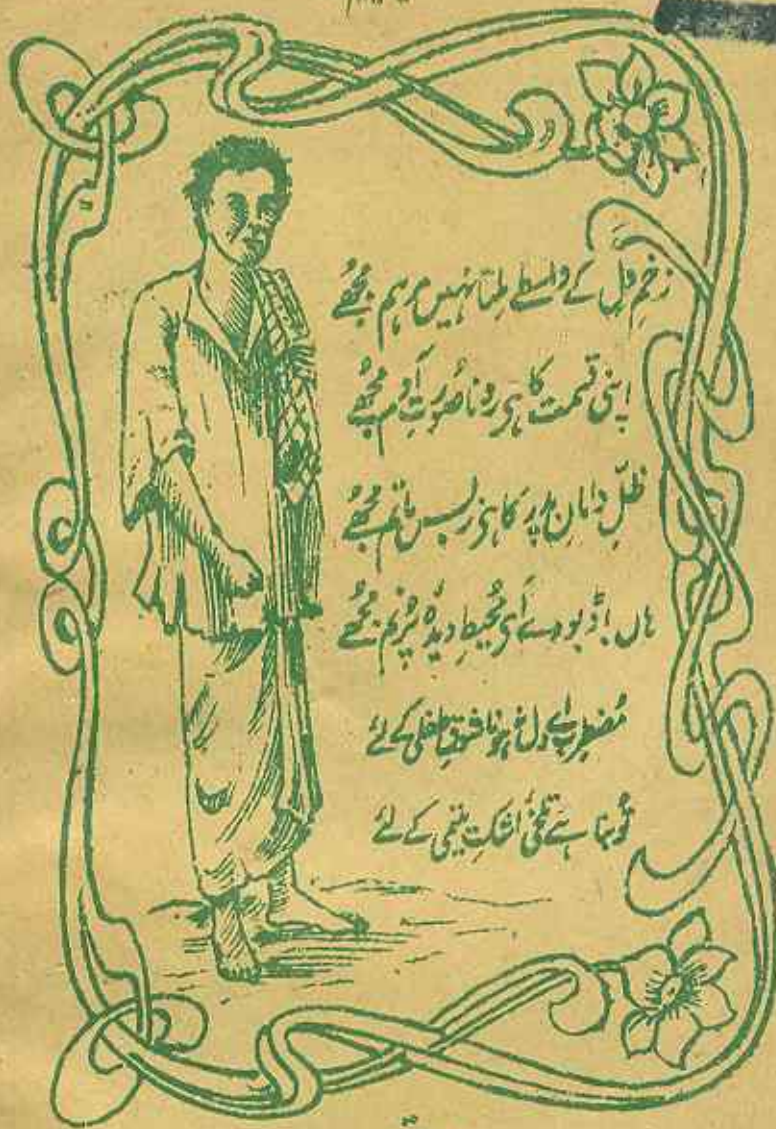 زخمِ دل کے واسطے ملتا نہیں مرہم مجھے
اپنی قسمت کا ہے رونا صورتِ آدم مجھے
ظلِّ دامانِ پدر کا ہے زبس ماتم مجھے
ہاں ڈبو دے اے محیطِ دیدۂ پُرنم مجھے
مضطرب اے دل نہ ہونا ذوقِ طفلی کے لئے
تُو بنا ہے تلخیٔ اشکِ یتیمی کے لئے